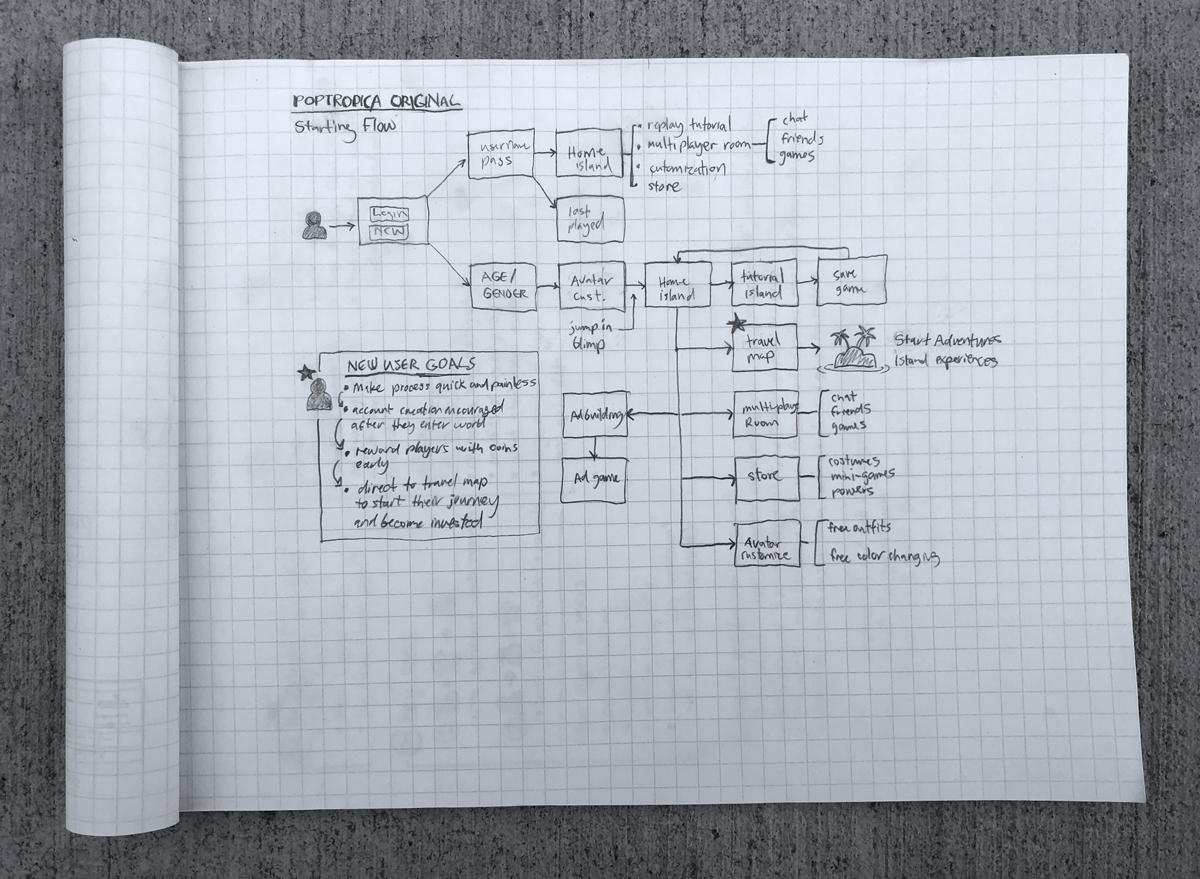 POPTROPICA ORIGINAL
Starting Flow
username
pass
Home
island
• replay tutorial
• multiplayer room
• cutomization
• store
chat
friends
games
Login
NEW
last
played
AGE/
GENDER
Avatar
cust.
jump in
blimp
Home
island
tutorial
island
save
game
travel
map
Start Adventures
Island experiences
Ad building
Ad game
multiplayer
Room
chat
friends
games
store
costumes
mini-games
powers
Avatar
customize
free outfits
free color changing
NEW USER GOALS
• Make process quick and painless
• account creation encouraged
after they enter world
• reward players with coins
early
• direct to travel map
to start their journey
and become invested